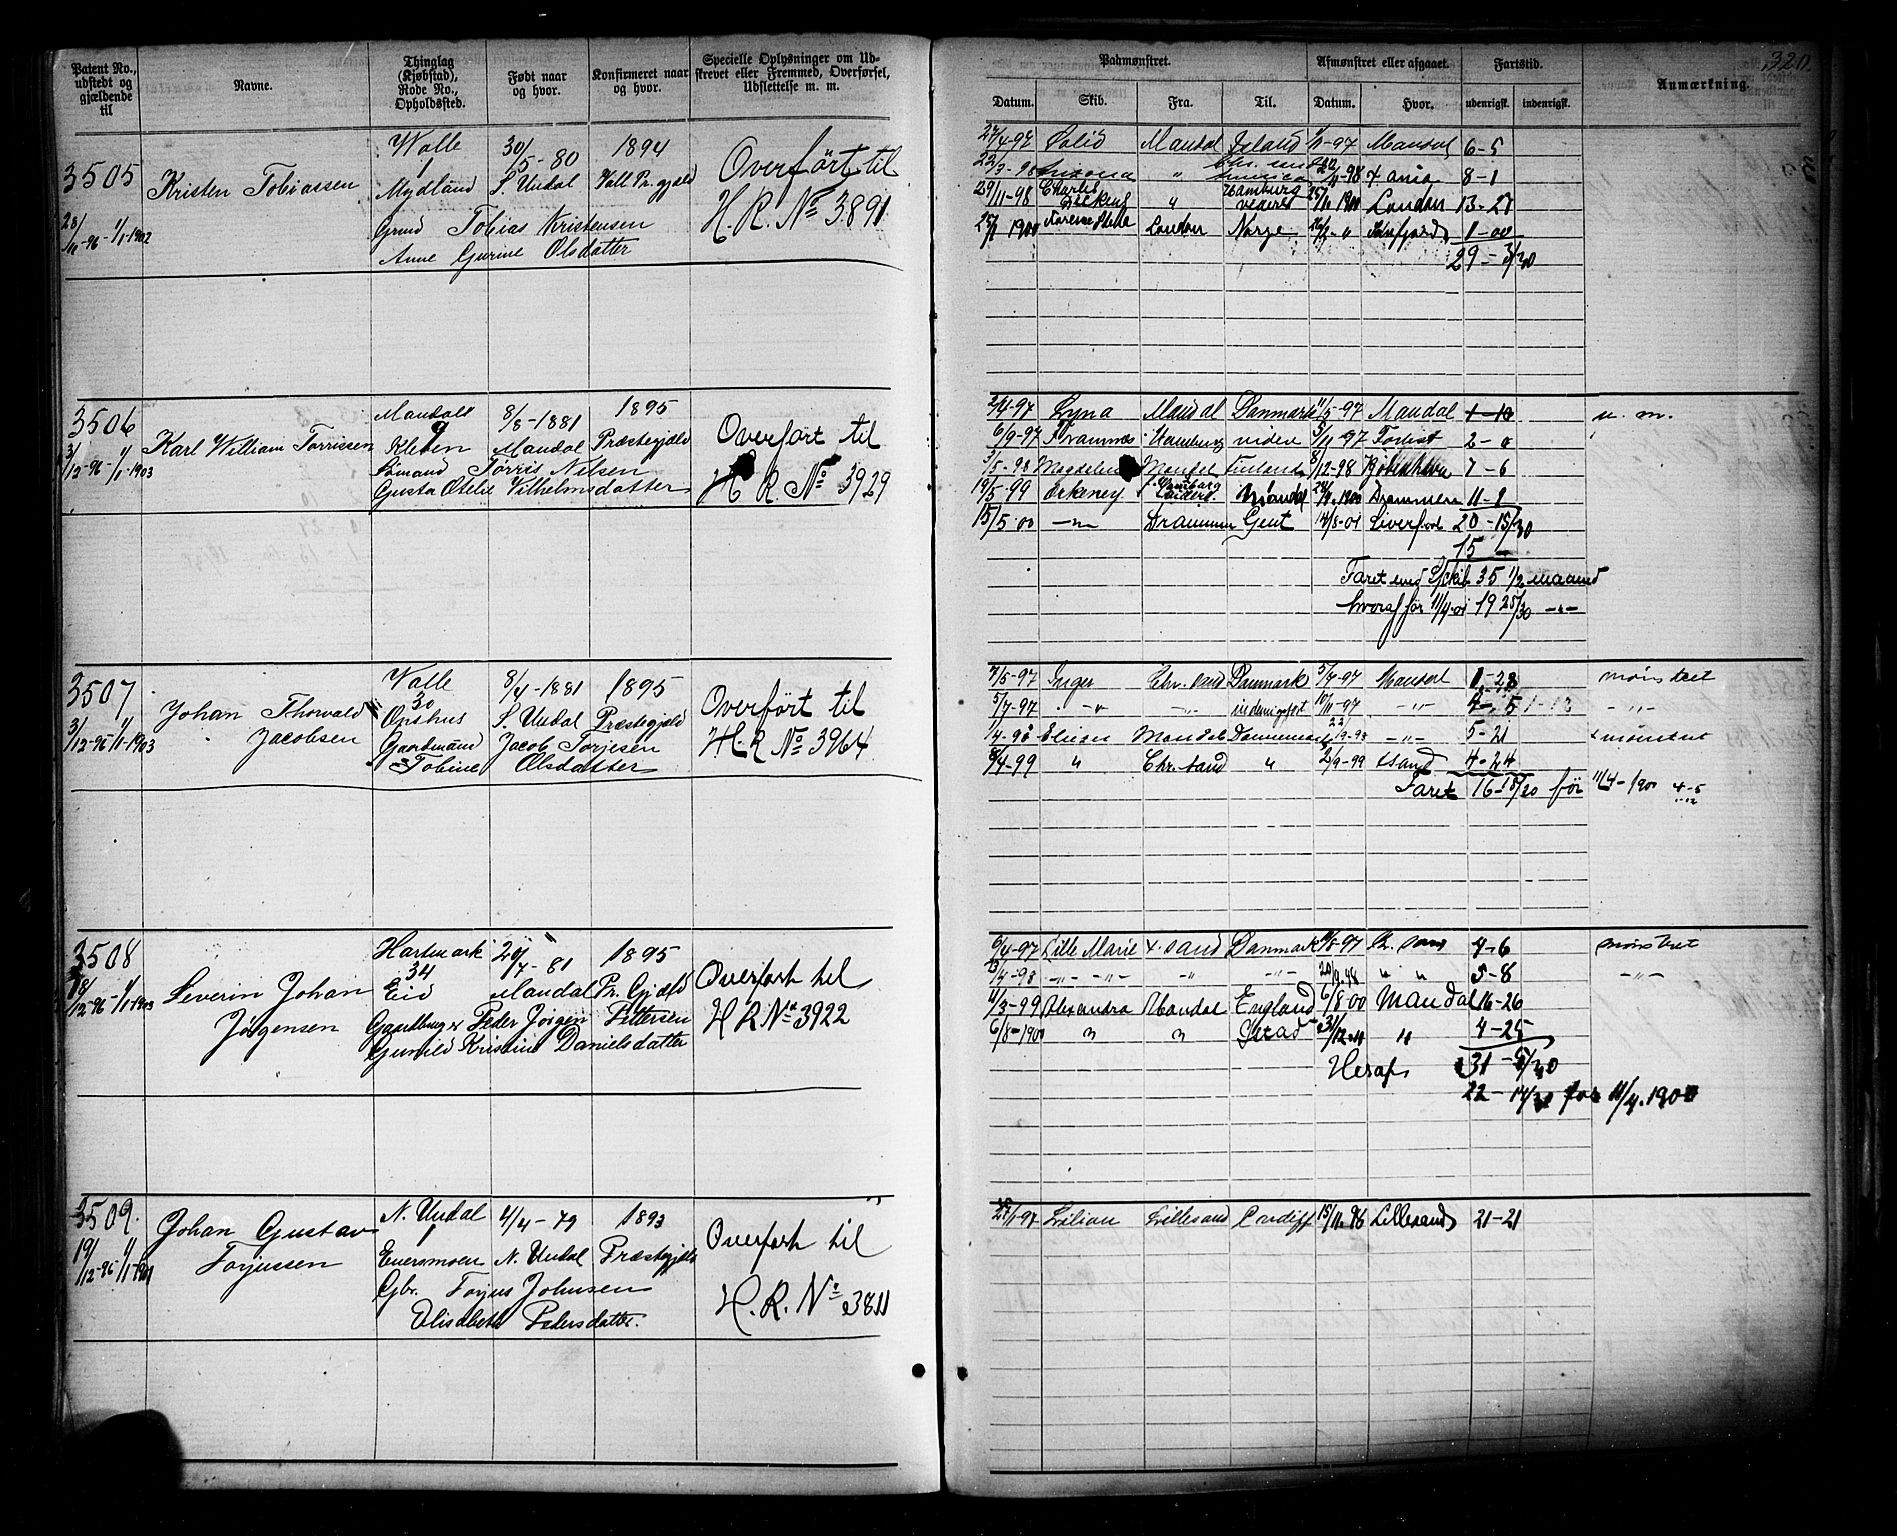 320.
Patent No., udstedt og gjældende til
Navne.
Thinglag (Kjøbstad), Rode No., Opholdssted.
Født naar og hvor.
Konfirmeret naar og hvor.
Specielle Oplysninger om Udskrevet eller Fremmed, Overførsel, Udslettelse m. m.
Paamønstret.
Afmønstret eller afgaaet.
Fartstid.
Anmærkning.
Datum. Skib. Fra. Til. Datum. Hvor. udenrigsk. indenrigsk.
3505
Kristen Tobiassen
28/11-96 - 1/1-1902
Valle
Mydland
30/5-80
S. Undal
1894
Vall Pr.gjæld
Gmd Tobias Kristensen
Anne Gurine Olsdatter
Overført til
H. R. No 3891
27/4-97 Solid Mandal Island 1/11-97 Mandal 6-5
22/3-98 Arizona " Chr. sund America 22/11-98 X ania 8-1
29/11-98 Charles Dickens " Hamburg videre 25/11 1900 London 13-27
London Norge 1-00
29 - 3/30
3506
Karl William Torrissen
3/12-96 - 1/1-1903
Mandals
9
Kleven
8/8-1881
Mandal
1895
Præstegjæld
Sømand Törris Nilsen
Gusta Otelie Vilhelmsdatter
Overført til
H R No 3929
2/4-97 Syna Mandal Danmark 11/5-97 Mandal 1-10 u. m.
6/9-97 Framnæs Hamburg videre 5/11-97 Forlist 2-0
3/5-98 Mandal Finland 8/12-98 Kjøbenhavn 7-6
19/5-99 Orkney Mandal Drammen 11-
15/5 00 -"- Drammen Gent 14/8-01 Liverpool 20-15/30
15 -
Faret med S/Skib 35 1/2 maaned
hvoraf før 11/4-01 19 25/30 -"-
3507
Johan Thorvald Jacobsen
3/12-96 - 1/1-1903
Valle
30
Opshus
8/4-1881
S. Undal
1895
Præstegjæld
Gaardmand Jacob Torjesen
Tobine Olsdatter
Overført til
H. R No 3964
7/5-97 Inger Chr. sand Danmark 5/7-97 Mandal 1-28 mønstret
5/7-97 -"- -"- indenrigsfart 10/11-97 -"- 4-5 1-12 -"-
1/4-98 Mandal 22/9-98 -"- 5-21 mønstret
8/4-99 " Chr. sand " 2/9-99 xsand 4-24
Faret 16-18/30 før 11/4-1900 4-5
1-12
3508
Severin Johan Jörgensen
18/12-96 - 1/1-1903
Hartmark
34
Eid
20/7-81
Mandal
1895
Pr. Gjæld
Gaardbruger Peder Jörgen Pettersen
Gunild Kristine Danielsdatter
Overført til
H R No 3922
6/4-97 Lille Marie x. sand Danmark 11/8-97 Chr. sand 4-6 mønstret
13/4-98 -"- -"- -"- -"- 20/9.98 " " 5-8 -"-
11/3-99 Alexandra Mandal England 6/8 00 Mandal 16-26
6/8-1900 " " 31/12-00 " 4-25
Heraf 31-5/30
22-14/30 før 11/4.1900
3509.
Johan Gustav Torjussen
19/12-96 - 1/1-1901
N. Undal
Evensmoen
4/4-79
N. Undal
1893
Præstegjæld
Gbr. Torjus Johnsen
Elisabeth Pedersdatter.
Overført til
H. R. No 3811
25/1-97 Lilian Lillesand Cardiff 15/11-98 Lillesand 21-21